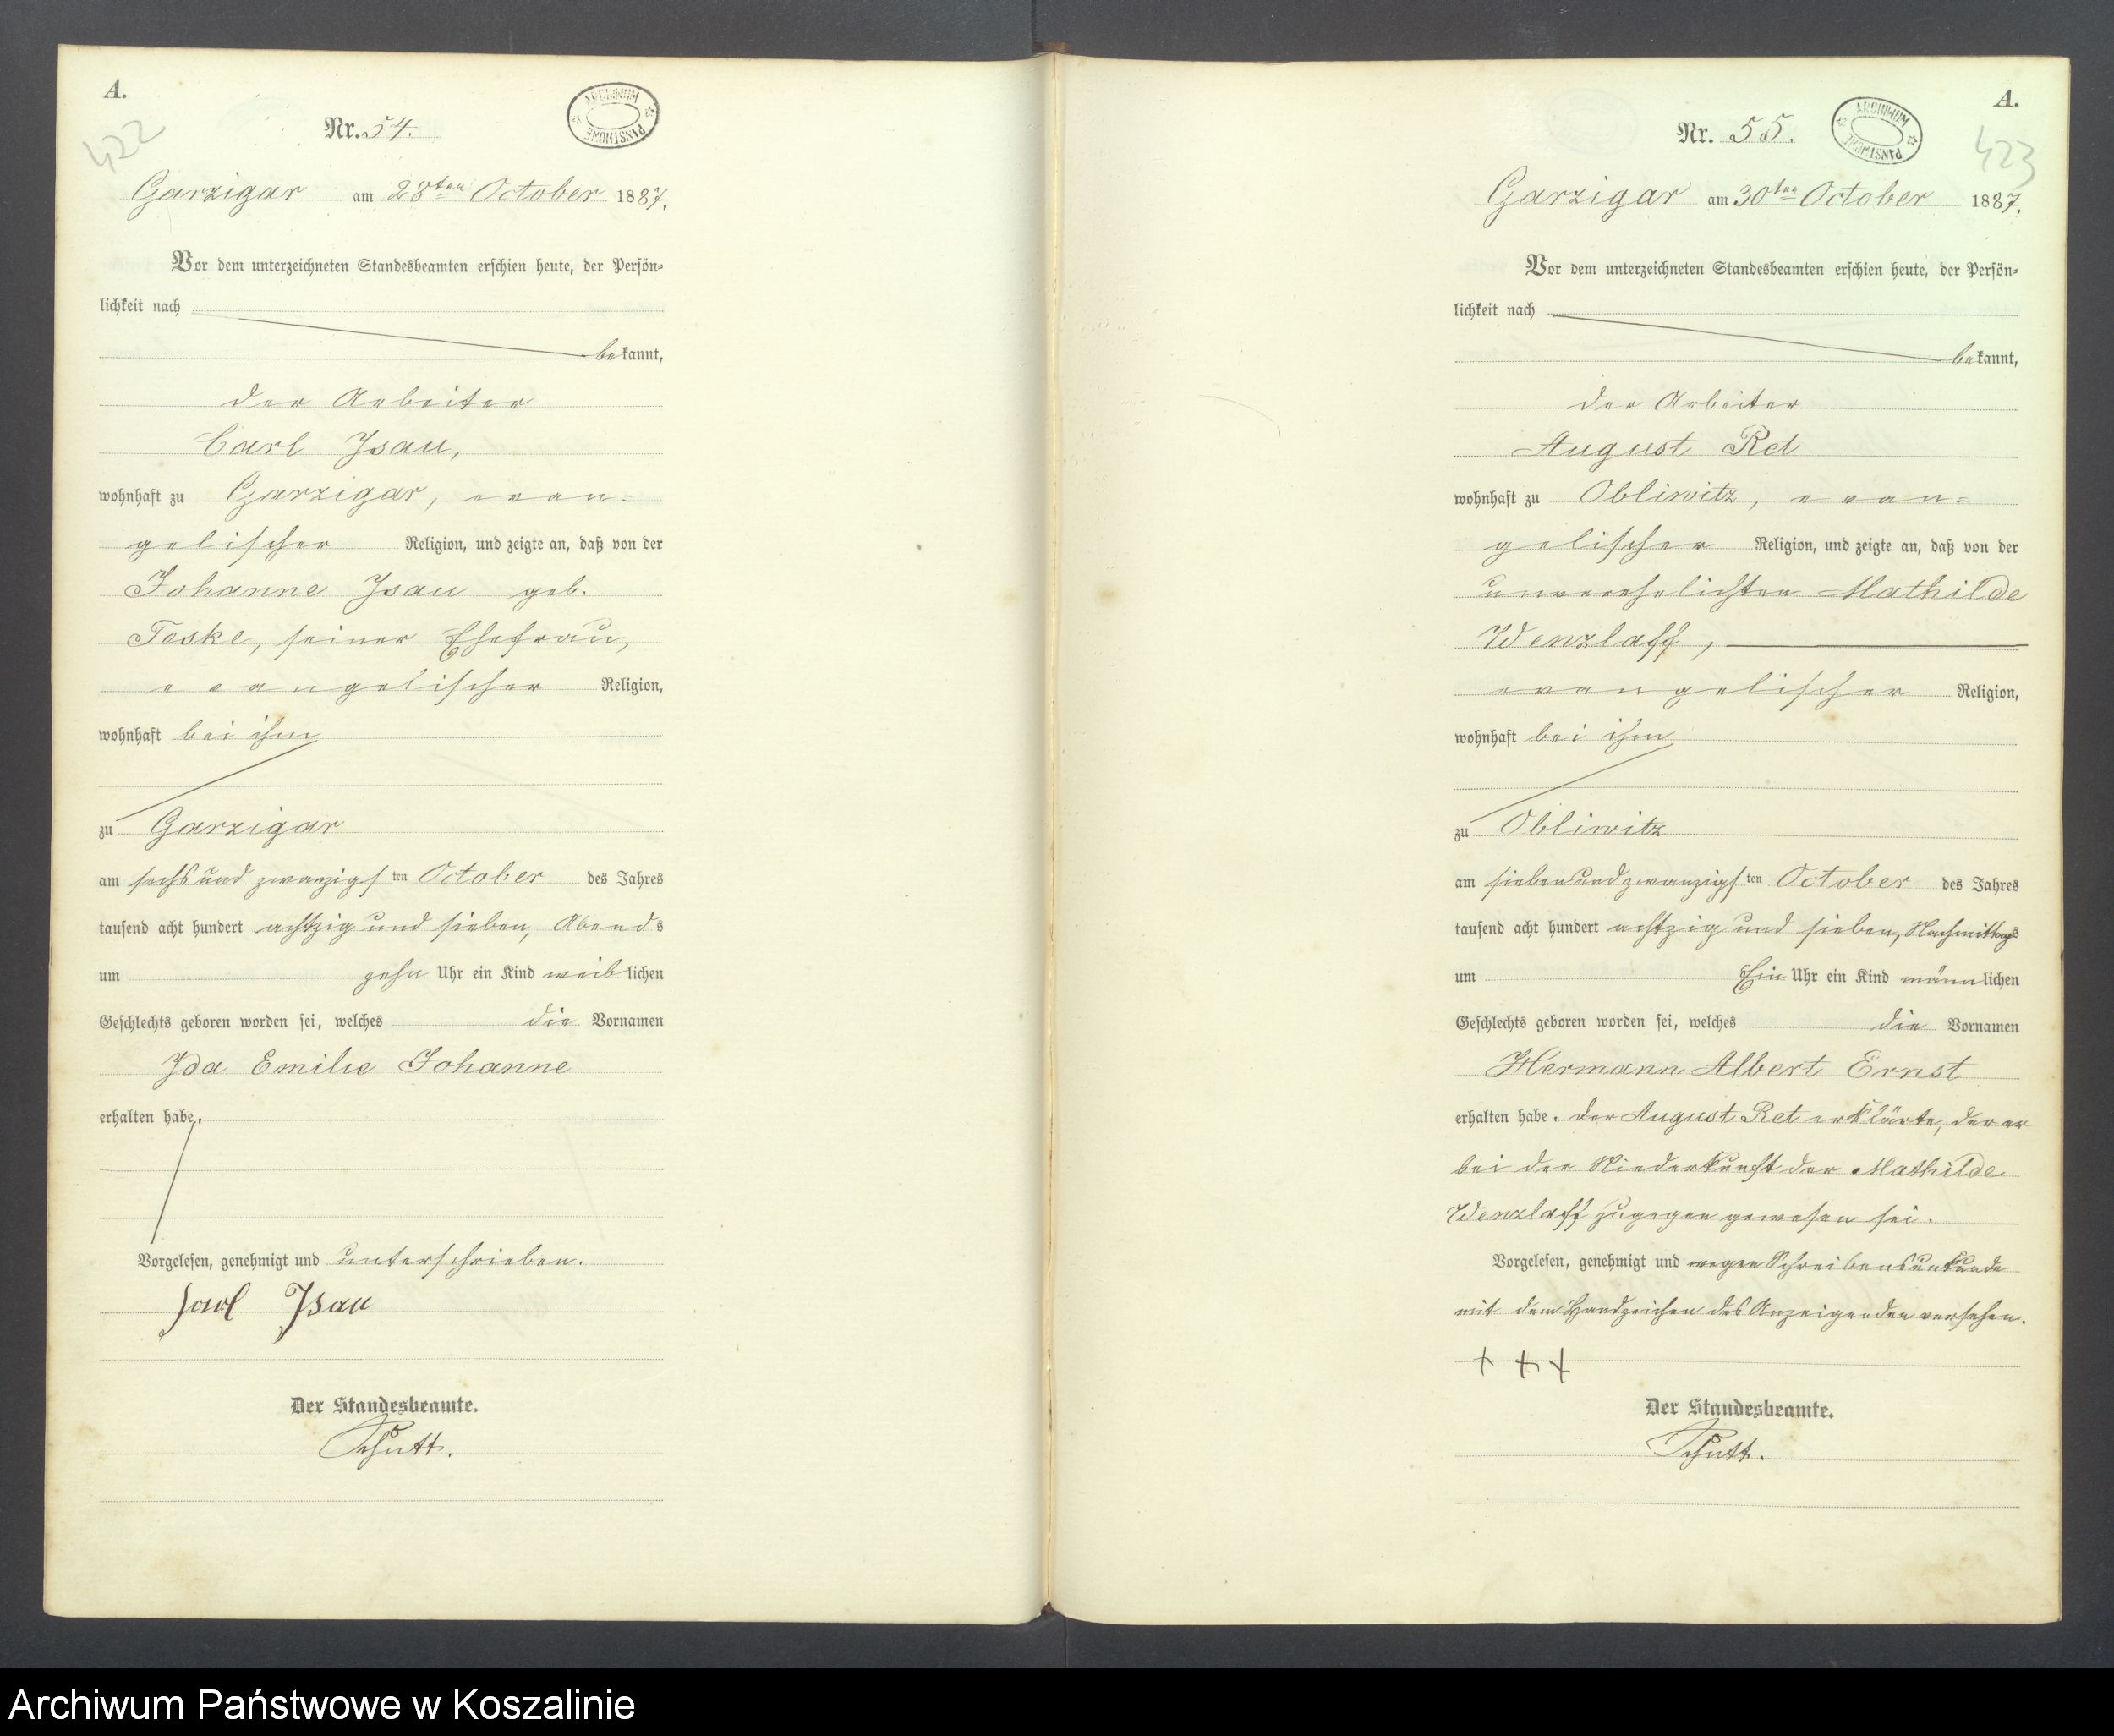 A.
422
Nr. 54.
ARCHIWUM PAŃSTWOWE
Garzigar am 28ten October 1887.
Vor dem unterzeichneten Standesbeamten erschien heute, der Persön-
lichkeit nach
bekannt,
der Arbeiter
Carl Isau,
wohnhaft zu Garzigar, evan-
gelischer Religion, und zeigte an, daß von der
Johanne Isau geb.
Teske, seiner Ehefrau,
evangelischer Religion,
wohnhaft bei ihm
zu Garzigar
am sechs und zwanzigsten October des Jahres
tausend acht hundert achtzig und sieben, Abends
um zehn Uhr ein Kind weiblichen
Geschlechts geboren worden sei, welches die Vornamen
Ida Emilie Johanne
erhalten habe.
Vorgelesen, genehmigt und unterschrieben.
Carl Isau
Der Standesbeamte.
Schutt.
A.
423
Nr. 55.
ARCHIWUM PAŃSTWOWE
Garzigar am 30ten October 1887.
Vor dem unterzeichneten Standesbeamten erschien heute, der Persön-
lichkeit nach
bekannt,
der Arbeiter
August Ret
wohnhaft zu Obliwitz, evan-
gelischer Religion, und zeigte an, daß von der
unverehelichten Mathilde
Wenzlaff,
evangelischer Religion,
wohnhaft bei ihm
zu Obliwitz
am sieben und zwanzigsten October des Jahres
tausend acht hundert achtzig und sieben, Nachmittags
um Ein Uhr ein Kind männlichen
Geschlechts geboren worden sei, welches die Vornamen
Hermann Albert Ernst
erhalten habe. Der August Ret erklärte, der er
bei der Niederkunft der Mathilde
Wenzlaff zugegen gewesen sei.
Vorgelesen, genehmigt und wegen Schreibensunkunde
mit dem Handzeichen des Anzeigenden versehen.
+ + +
Der Standesbeamte.
Schutt.
Archiwum Państwowe w Koszalinie